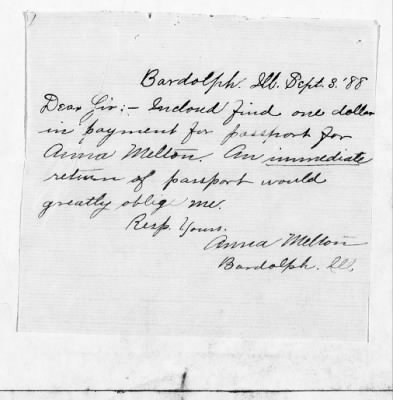 Bardolph. Ill. Sept. 3. '88
Dear Sir:- Inclosed find one dollar
in payment for passport for
Anna Melton. An immediate
return of passport would
greatly oblige me.
Resp. Yours.
Anna Melton
Bardolph. Ill.